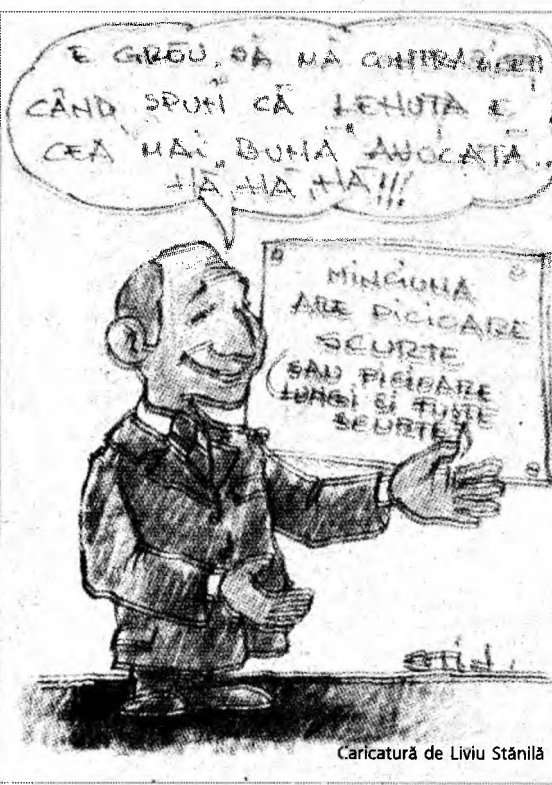 E GREU, SĂ MĂ CONTRAZICEȚI
CÂND SPUN CĂ LENUȚA E
CEA MAI BUNĂ AVOCATĂ..
HĂ, HĂ, HĂ!!!
MINCIUNA
ARE PICIOARE
SCURTE
(SAU PICIOARE
LUNGI ȘI FUSTE
SCURTE)
Caricatură de Liviu Stănilă